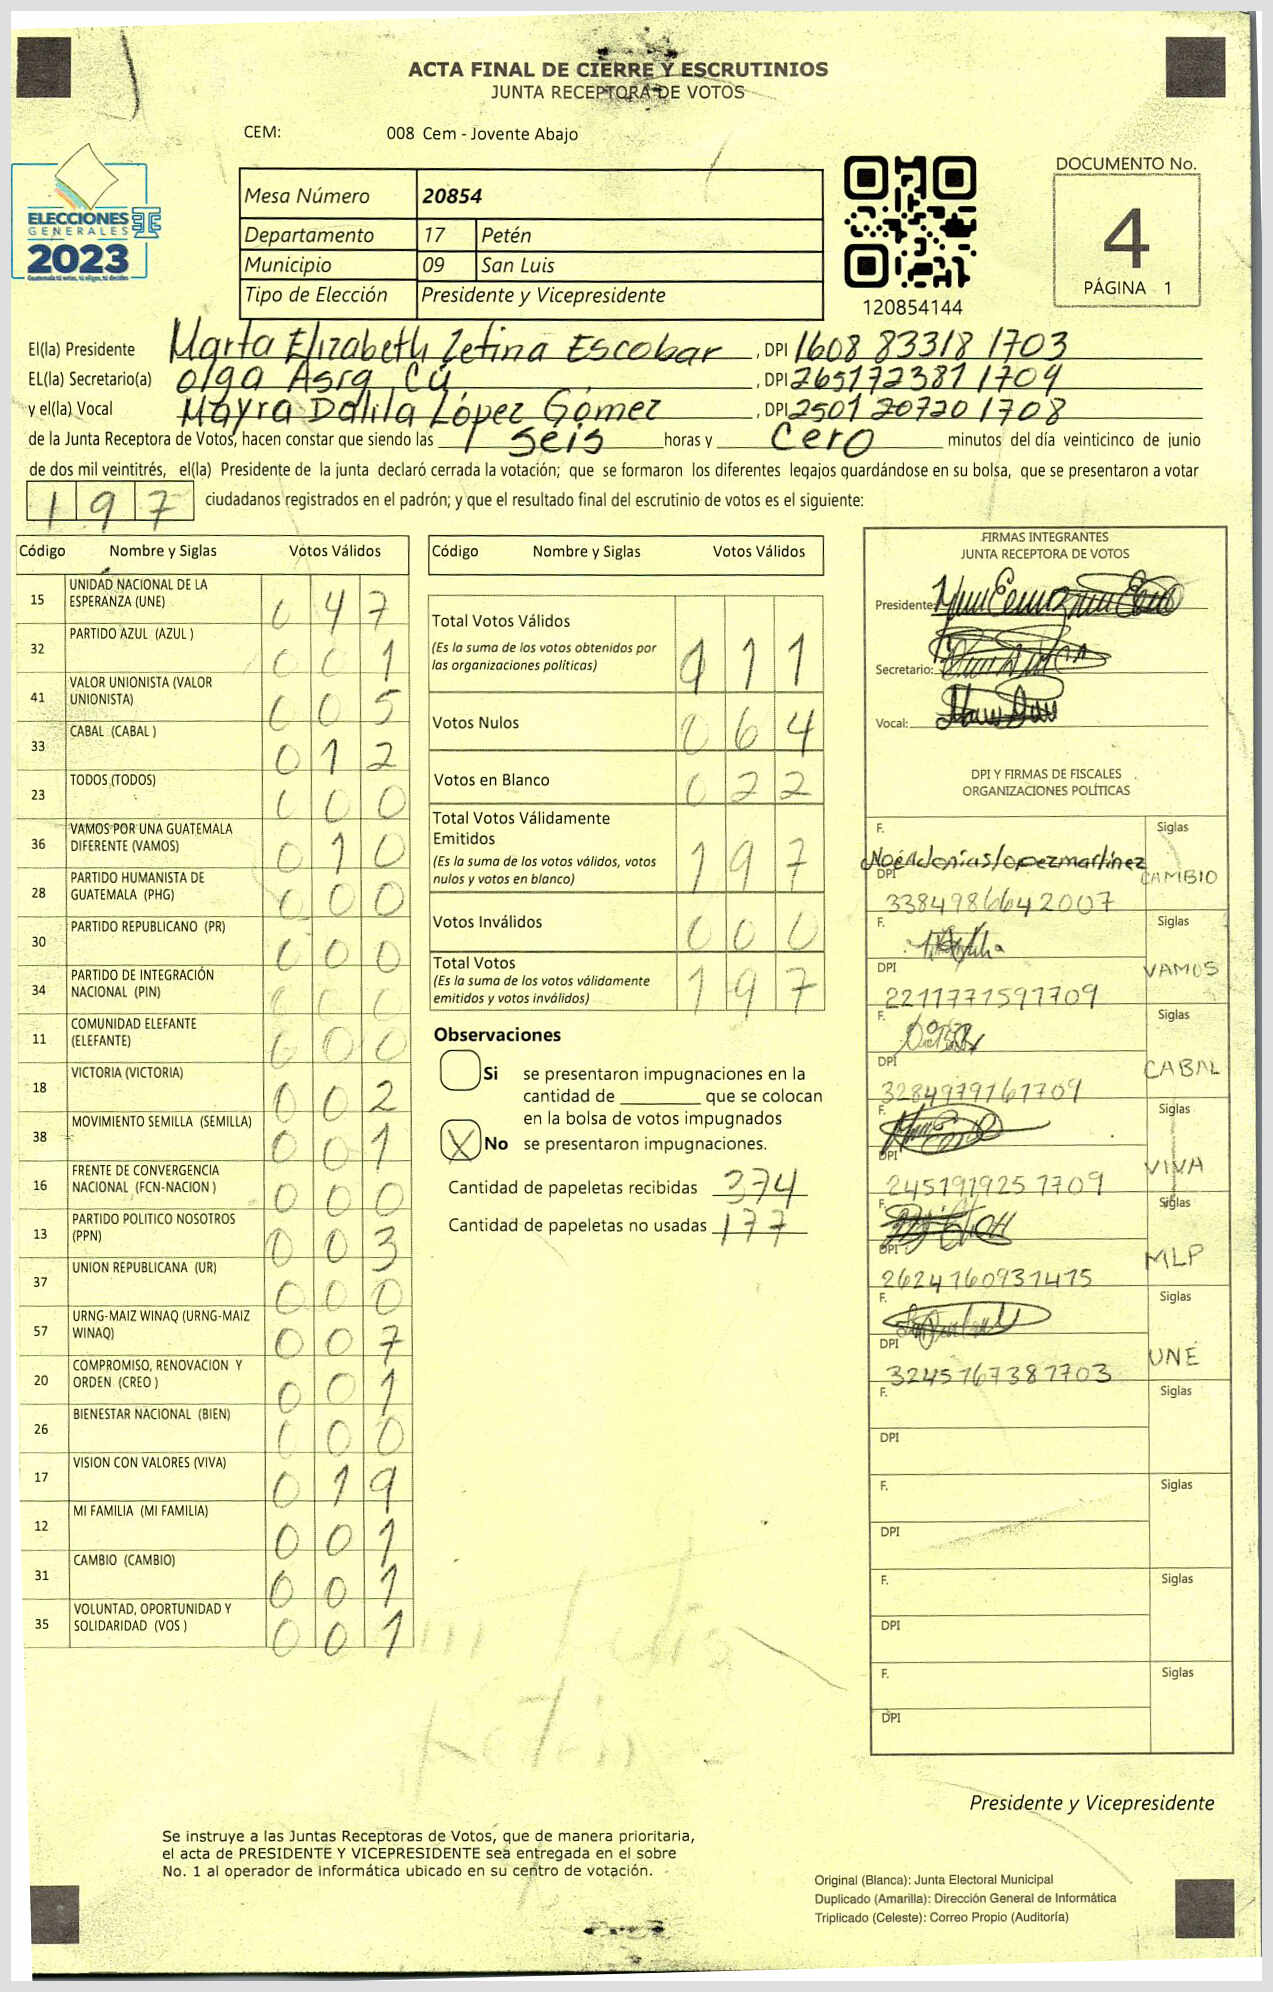 ACTA FINAL DE CIERRE Y ESCRUTINIOS
JUNTA RECEPTORA DE VOTOS
CEM: 008 Cem - Jovente Abajo
ELECCIONES
GENERALES
2023
Mesa Número 20854
Departamento 17 Petén
Municipio 09 San Luis
Tipo de Elección Presidente y Vicepresidente
120854144
DOCUMENTO No.
4
PÁGINA 1
El(la) Presidente Marta Elizabeth Zetina Escobar, DPI 1608 83318 1703
EL(la) Secretario(a) olga Asrg Cú, DPI 265172381 1709
y el(la) Vocal Mayra Dalila López Gómez, DPI 2501 20720 1708
de la Junta Receptora de Votos, hacen constar que siendo las seis horas y cero minutos del día veinticinco de junio
de dos mil veintitrés, el(la) Presidente de la junta declaró cerrada la votación; que se formaron los diferentes legajos guardándose en su bolsa, que se presentaron a votar
197 ciudadanos registrados en el padrón; y que el resultado final del escrutinio de votos es el siguiente:
Código Nombre y Siglas Votos Válidos
15 UNIDAD NACIONAL DE LA
ESPERANZA (UNE) 047
32 PARTIDO AZUL (AZUL ) 001
41 VALOR UNIONISTA (VALOR
UNIONISTA) 005
33 CABAL (CABAL ) 012
23 TODOS (TODOS) 000
36 VAMOS POR UNA GUATEMALA
DIFERENTE (VAMOS) 010
28 PARTIDO HUMANISTA DE
GUATEMALA (PHG) 000
30 PARTIDO REPUBLICANO (PR) 000
34 PARTIDO DE INTEGRACIÓN
NACIONAL (PIN) 000
11 COMUNIDAD ELEFANTE
(ELEFANTE) 000
18 VICTORIA (VICTORIA) 002
38 MOVIMIENTO SEMILLA (SEMILLA) 001
16 FRENTE DE CONVERGENCIA
NACIONAL (FCN-NACION ) 000
13 PARTIDO POLITICO NOSOTROS
(PPN) 003
37 UNION REPUBLICANA (UR) 000
57 URNG-MAIZ WINAQ (URNG-MAIZ
WINAQ) 007
20 COMPROMISO, RENOVACION Y
ORDEN (CREO ) 001
26 BIENESTAR NACIONAL (BIEN) 000
17 VISION CON VALORES (VIVA) 019
12 MI FAMILIA (MI FAMILIA) 001
31 CAMBIO (CAMBIO) 001
35 VOLUNTAD, OPORTUNIDAD Y
SOLIDARIDAD (VOS ) 001
Código Nombre y Siglas Votos Válidos
Total Votos Válidos
(Es la suma de los votos obtenidos por
las organizaciones políticas) 111
Votos Nulos 064
Votos en Blanco 022
Total Votos Válidamente
Emitidos
(Es la suma de los votos válidos, votos
nulos y votos en blanco) 197
Votos Inválidos 000
Total Votos
(Es la suma de los votos válidamente
emitidos y votos inválidos) 197
Observaciones
Si se presentaron impugnaciones en la
cantidad de ________ que se colocan
en la bolsa de votos impugnados
X No se presentaron impugnaciones.
Cantidad de papeletas recibidas 374
Cantidad de papeletas no usadas 177
FIRMAS INTEGRANTES
JUNTA RECEPTORA DE VOTOS
Presidente:
Secretario:
Vocal:
DPI Y FIRMAS DE FISCALES
ORGANIZACIONES POLÍTICAS
F. Siglas
CAMBIO
DPI 3384986642007
F. Siglas
VAMOS
DPI 2211771591709
F. Siglas
CABAL
DPI 3284979161709
F. Siglas
VIVA
DPI 2451919251709
F. Siglas
MLP
DPI 2624160931415
F. Siglas
UNE
DPI 3245167381703
F. Siglas
DPI
F. Siglas
DPI
F. Siglas
DPI
F. Siglas
DPI
Presidente y Vicepresidente
Se instruye a las Juntas Receptoras de Votos, que de manera prioritaria,
el acta de PRESIDENTE Y VICEPRESIDENTE sea entregada en el sobre
No. 1 al operador de informática ubicado en su centro de votación.
Original (Blanca): Junta Electoral Municipal
Duplicado (Amarilla): Dirección General de Informática
Triplicado (Celeste): Correo Propio (Auditoría)